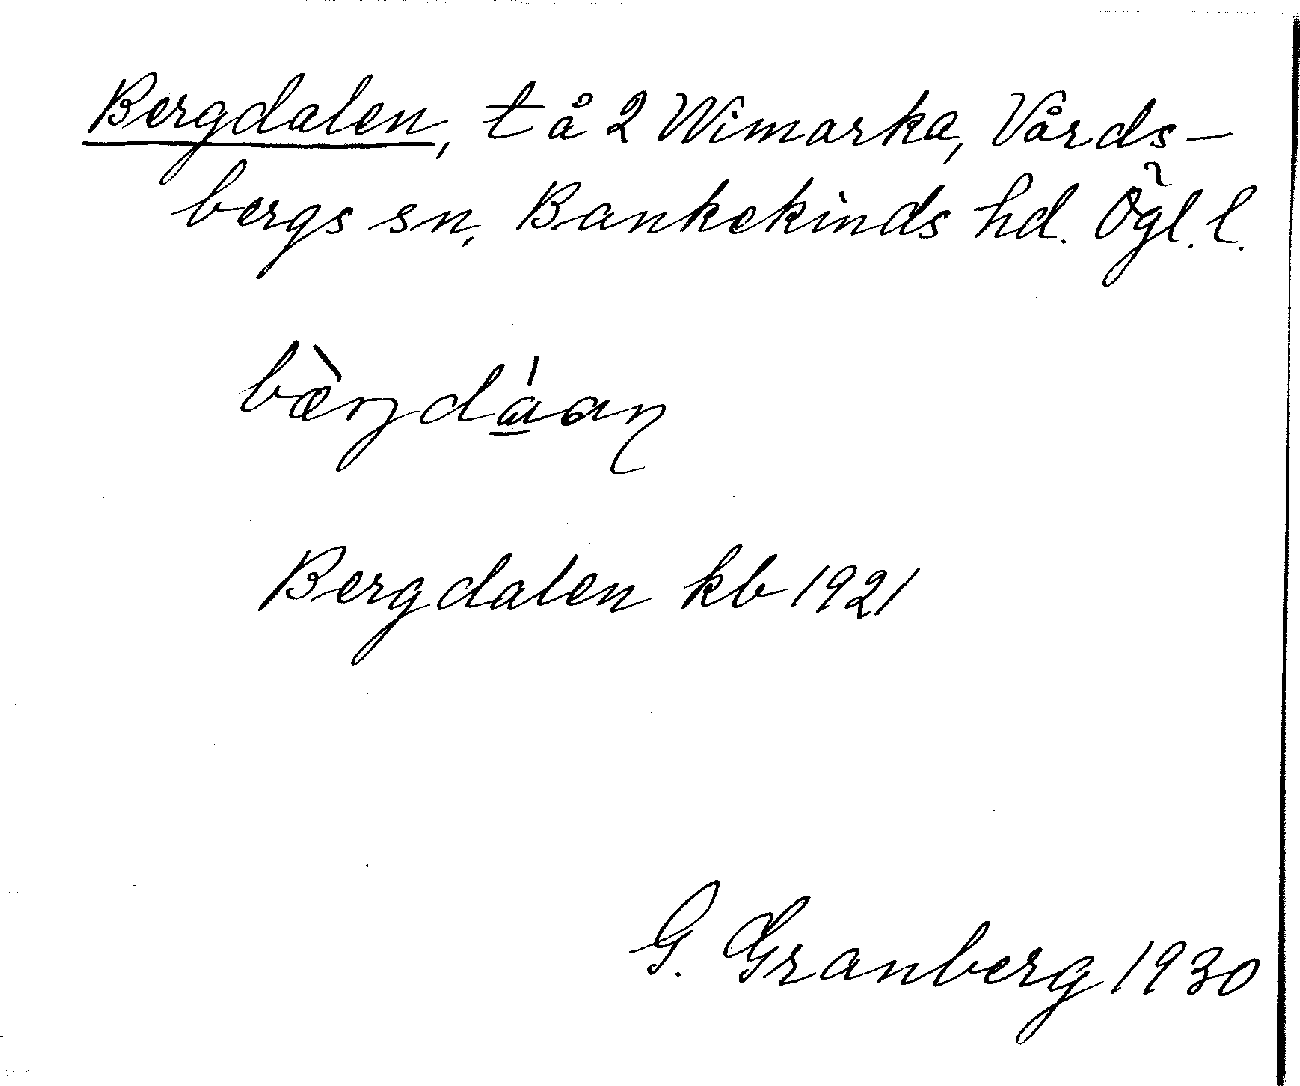 Bergdalen, t å 2 Wimarka, Vårds-
bergs sn, Bankekinds hd. Ögl. l.
bæ̀rjdáan
Bergdalen kb 1921
G. Granberg 1930